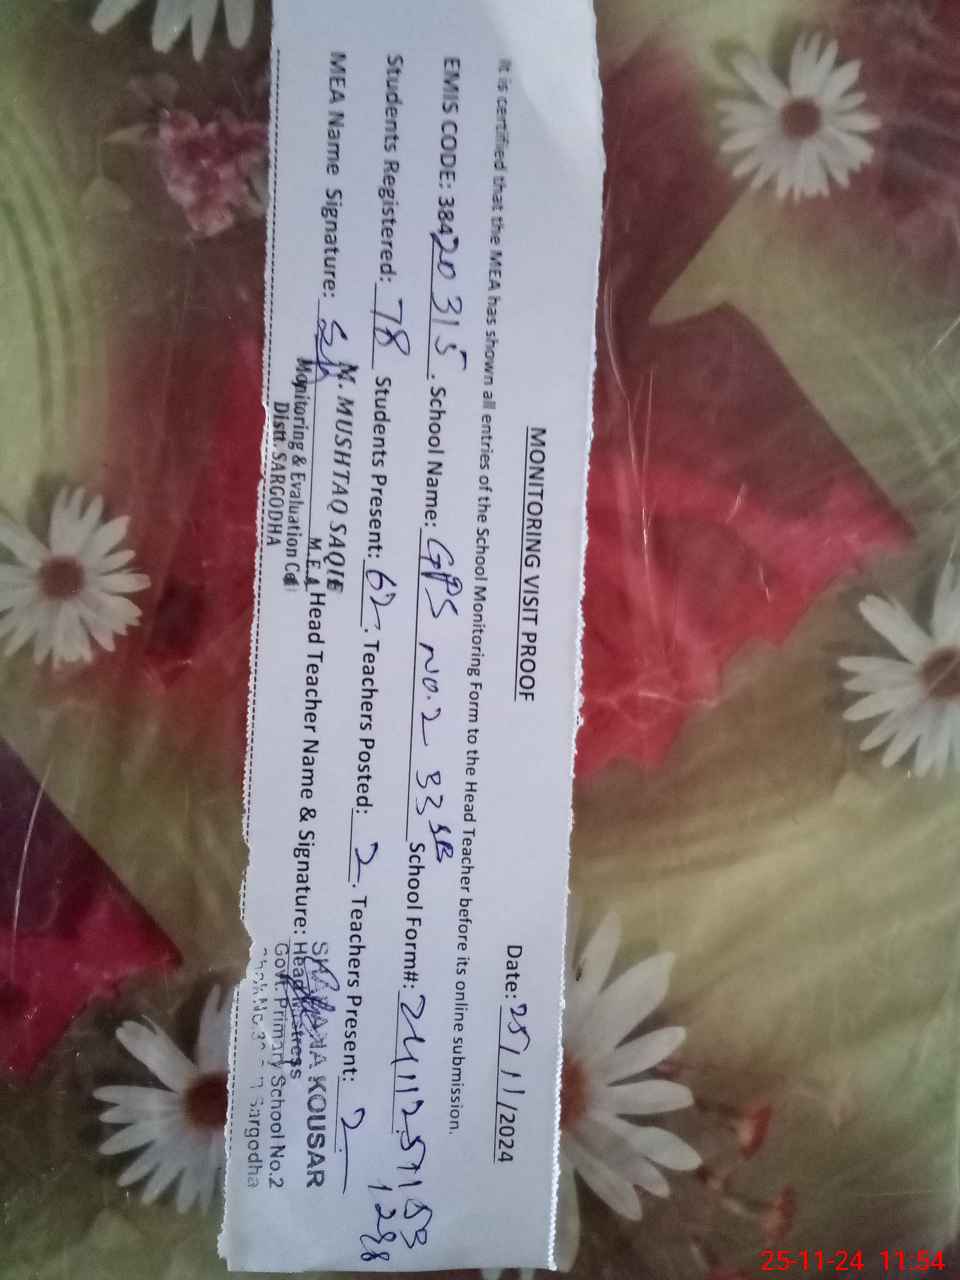 MONITORING VISIT PROOF
Date: 25/11/2024
It is certified that the MEA has shown all entries of the School Monitoring Form to the Head Teacher before its online submission.
EMIS CODE: 38420315. School Name: GPS No.2 33 SB School Form#: 241125
Students Registered: 78 Students Present: 62. Teachers Posted: 2. Teachers Present: 2
1288
MEA Name Signature: M. MUSHTAQ SAQIB Head Teacher Name & Signature: KOUSAR
M.E.A Head Mistress
Monitoring & Evaluation Cell Govt. Primary School No.2
Distt. SARGODHA Chak No. Sargodha
25-11-24 11:54